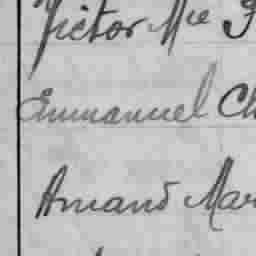 Victor Mce
Emmanuel Ch
Amand Mar